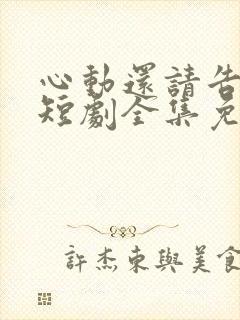 心動還請告
短劇全集免
許杰東與美食